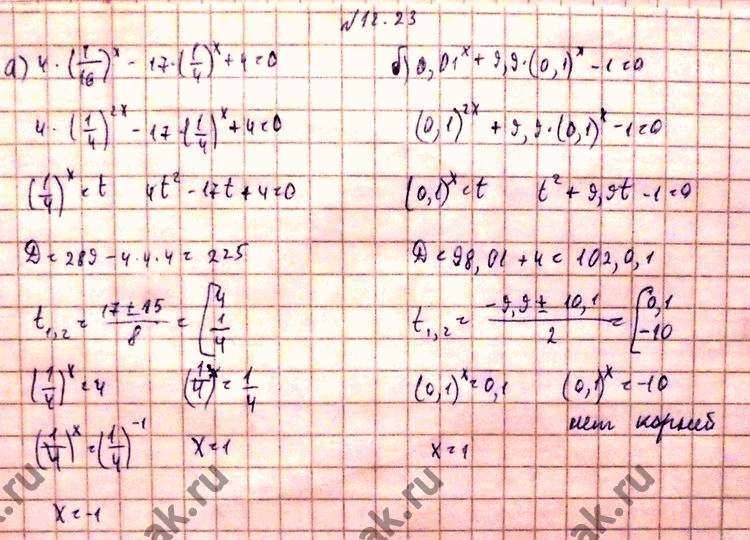 №12.23
а) 4·(1/16)^x − 17·(1/4)^x + 4 = 0
4·(1/4)^2x − 17·(1/4)^x + 4 = 0
(1/4)^x = t 4t² − 17t + 4 = 0
D = 289 − 4·4·4 = 225
t1,2 = (17 ± 15)/8 = [4 1/4
(1/4)^x = 4 (1/4)^x = 1/4
(1/4)^x = (1/4)^−1 x = 1
x = −1
б) 0,01^x + 9,9·(0,1)^x − 1 = 0
(0,1)^2x + 9,9·(0,1)^x − 1 = 0
(0,1)^x = t t² + 9,9t − 1 = 0
D = 98,01 + 4 = 102,0,1
t1,2 = (−9,9 ± 10,1)/2 = [0,1 −10
(0,1)^x = 0,1 (0,1)^x = −10
нет корней
x = 1
ak.ru
ak.ru
ak.ru